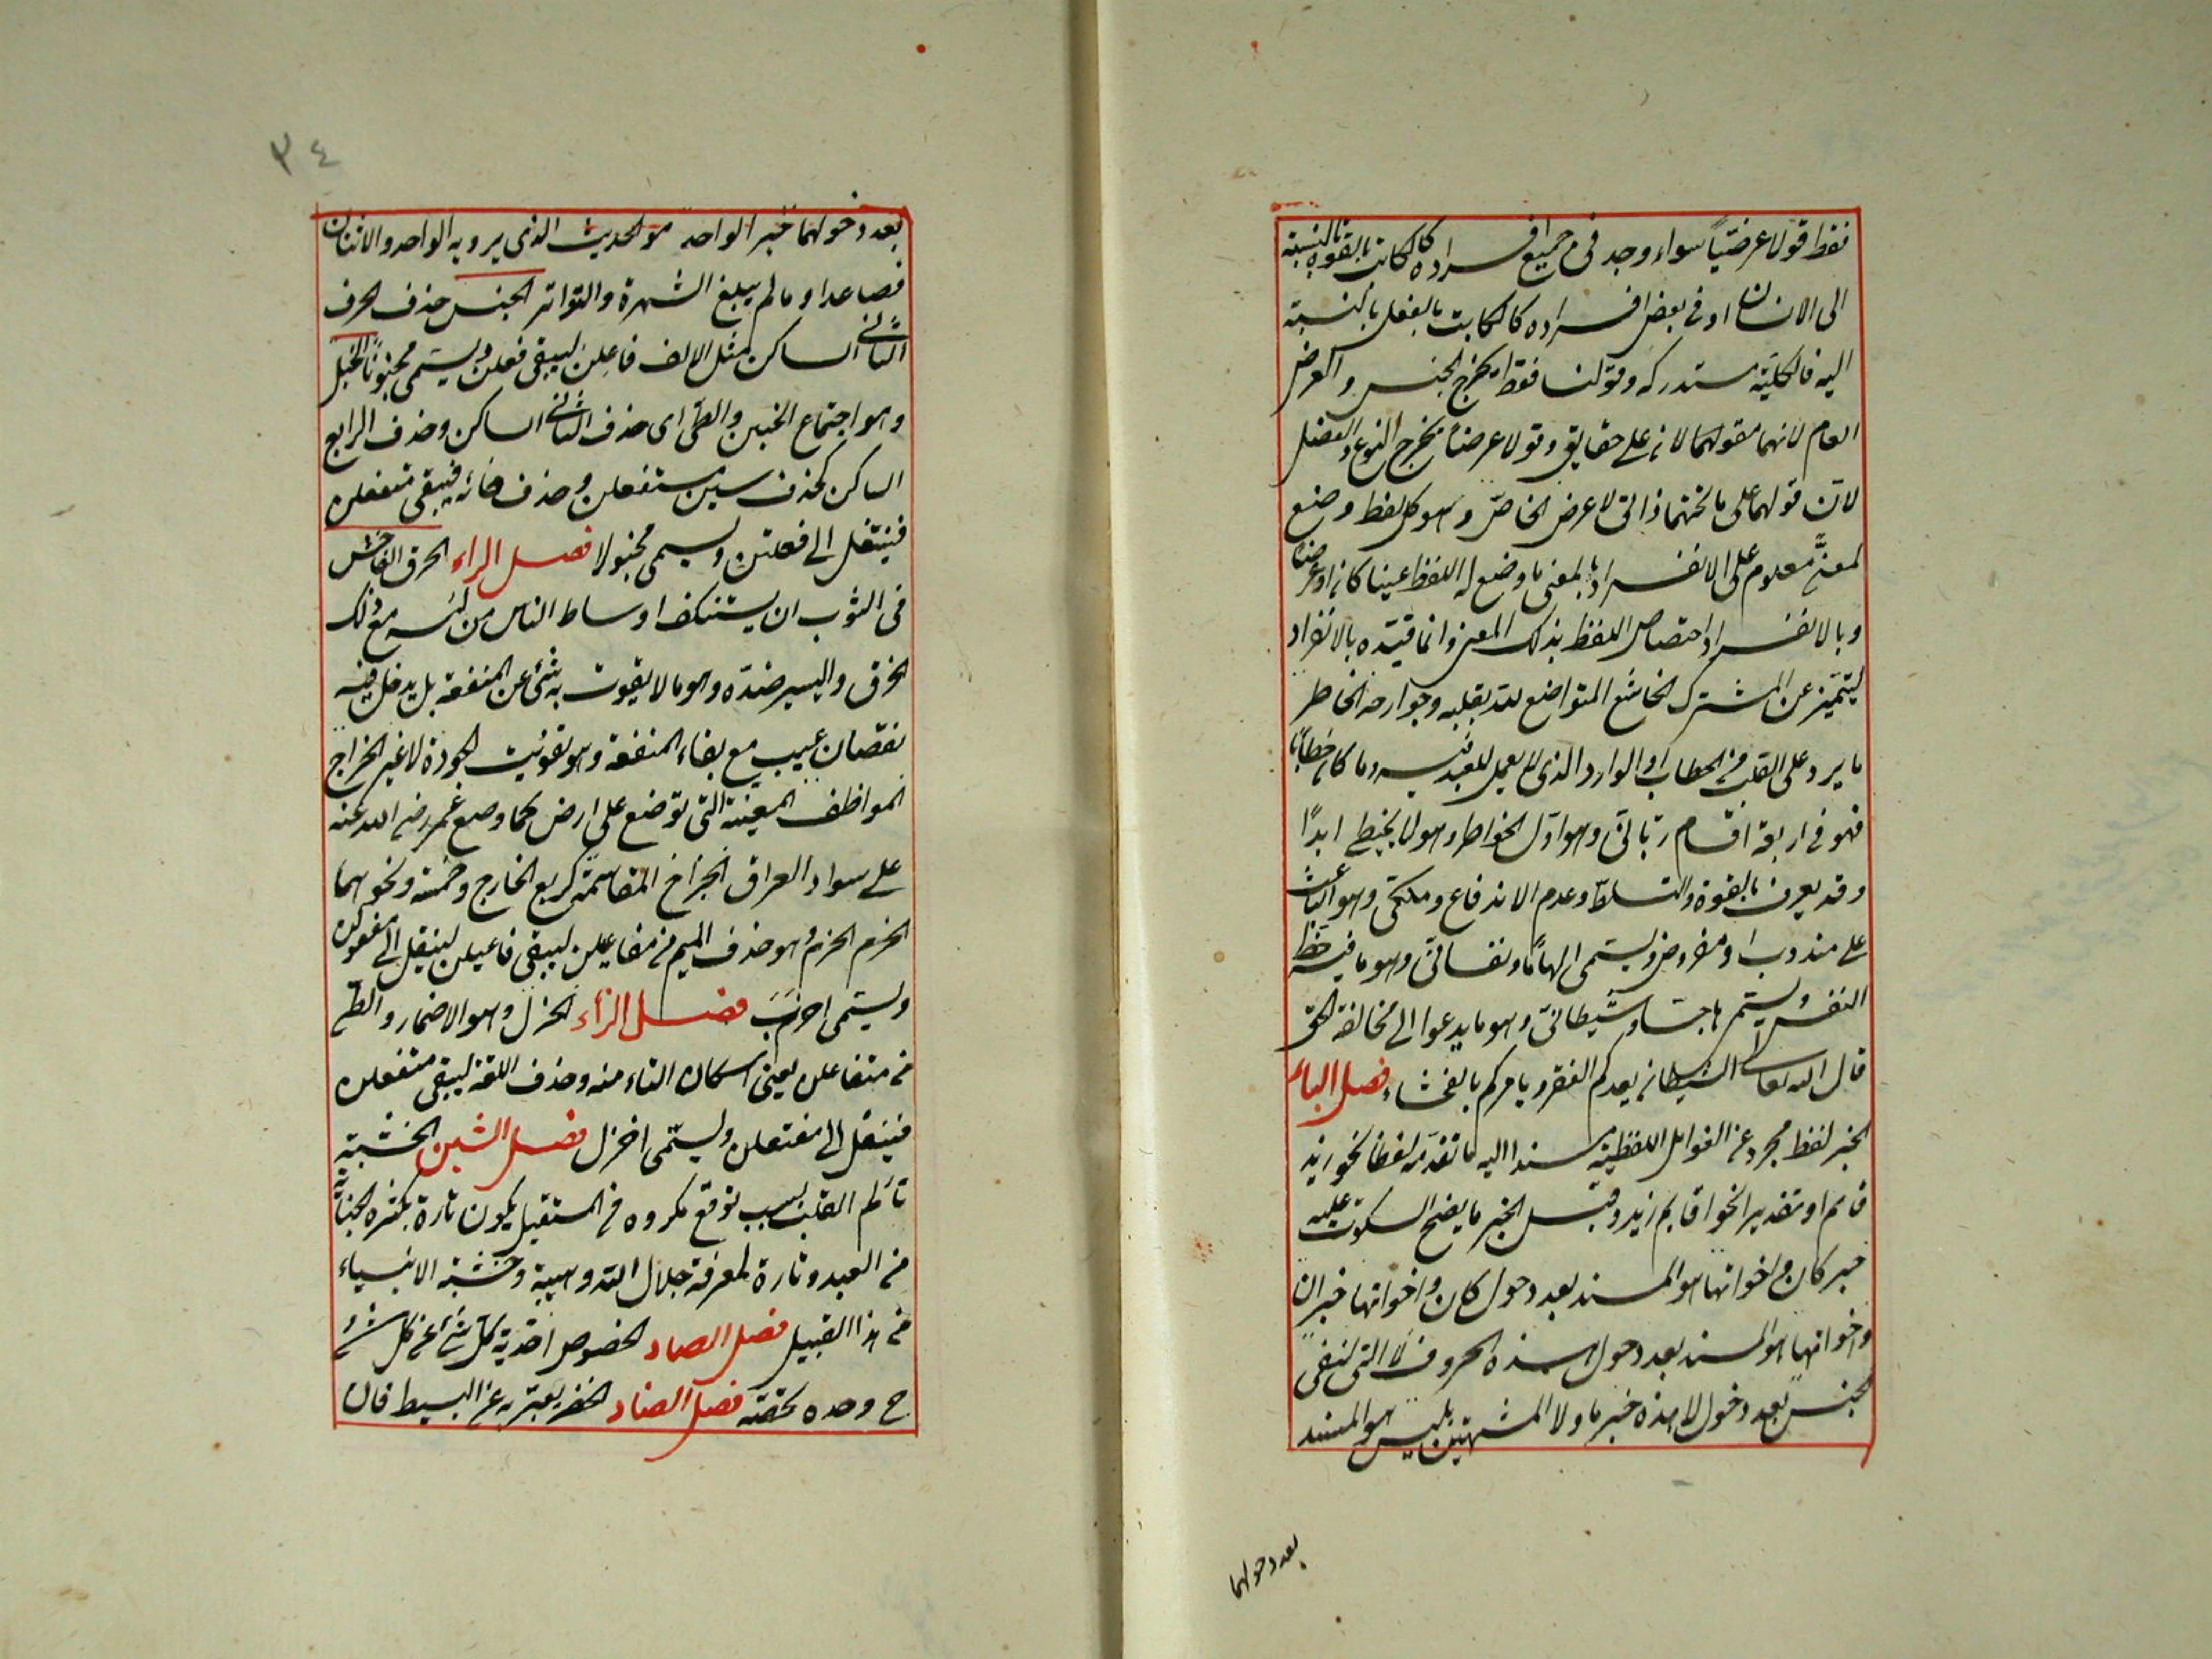 فقط قولا عرضيّاً سواء وجد في جميع افراده كالكاتب بالقوة بالنسبة
الى الانسان او في بعض افراده كالكاتب بالفعل بالنسبة
اليه فالكلية مستدركه وقولنا فقط يخرج الجنس والعرض
العام لانهما مقولان على حقايق وقولا عرضيا يخرج النوع والفصل
لان قولهما على ما تحتهما ذاتى لا عرضى الخاصّ وهو كل لفظ وضع
لمعنًى معلوم على الانفراد بالمعنى ما وضع له اللفظ عينا كان او عرضا
وبالانفراد اختصاص اللفظ بذلك المعنى وانما قيّده بالانفراد
ليتميّز عن المشترك الخاشع المتواضع لله بقلبه وجوارحه الخاطر
ما يرد على القلب من الخطاب او الوارد الذى لا يعمل للعبد فيه وما كان خطابًا
فهو في اربعة اقسام ربّانّى وهو اوّل الخواطر وهو لا يخطى ابدًا
وقد يعرف بالقوة والتسلط وعدم الاندفاع وملكىّ وهو الباعث
على مندوب او مفروض ويسمى الهامًا ونفسانىّ وهو ما فيه حظ
النفس ويسمى هاجسا وشيطانىّ وهو ما يدعوا الى مخالفة الحق
قال الله تعالى الشيطان يعدكم الفقر ويامركم بالفحشاء فصل الباء
الخبر لفظ مجرد عن العوامل اللفظية مسندا اليه ما تقدّمه لفظا نحو زيد
قائم او تقديرا نحو اقايم زيد وقيل الخبر ما يصح السكوت عليه
خبر كان واخواتها هو المسند بعد دخول كان واخواتها خبر ان
واخواتها هو المسند بعد دخول هذه الحروف لا التى لنفى
الجنس بعد دخول لا هذه خبر ما ولا المشبهتين بليس هو المسند
بعد دخولهما
٣٤
بعد دخولهما خبر الواحد هو الحديث الذى يرويه الواحد والاثنان
فصاعدا وما لم يبلغ الشهرة والتواتر الخبن حذف الحرف
الثانى الساكن مثل الالف فاعلن ليبقى فعلن ويسمى مخبونًا الخبل
وهو اجتماع الخبن والطى اى حذف الثانى الساكن وحذف الرابع
الساكن كحذف سين مستفعلن وحذف فائه فيبقى متعلن
فينتقل الى فعلتن ويسمى مخبولا فصل الراء الخرق الفاحش
في الثوب ان يستنكف اوساط الناس من لبسه مع ذلك
الخرق واليسير ضدّه وهو ما لا يفوت به شئ عن المنفعة بل يدخل فيه
نقصان عيب مع بقاء المنفعة وهو تفويت الجودة لا غير الخراج
الموظف المعينة التى توضع على ارض كما وضع عمر رضى الله عنه
على سواد العراق الخراج المقاسمة كربع الخارج وخمسه ونحوهما
الخرم الخزم وهو حذف الميم من مفاعيلن ليبقى فاعيلن لينقل الى مفعولن
ويسمى اخرب فصل الزاء الخزل وهو الاضمار والطى
من متفاعلن يعنى اسكان التاء منه وحذف الفه ليبقى متفعلن
فينقل الى مفتعلن ويسمّى اخزل فصل الشين الخشية
تألم القلب بسبب توقع مكروه في المستقبل يكون تارة بكثرة الجناية
من العبد وتارة لمعرفة جلال الله وهيبة وخشية الانبياء
من هذا القبيل فصل الصاد الخصوص احدية كل شئ عن كل شئ
ح وحده بخصته فصل الضاد الخضر يعبّر به عن البسط فان